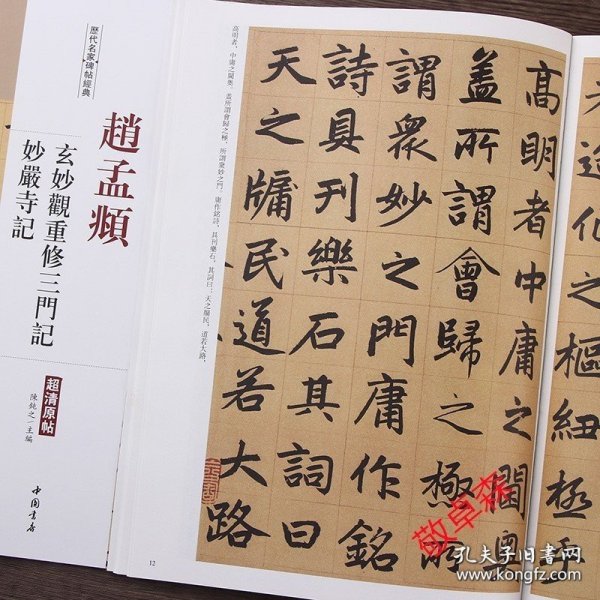 歷代名家碑帖經典
趙孟頫
玄妙觀重修三門記
妙嚴寺記
超清原帖
陳鈍之/主編
中國書店
造化之樞紐極乎
高明者中庸之閫奧
盖所謂會歸之極所
謂衆妙之門庸作銘
詩具刊樂石其詞曰
天之牖民道若大路
高明者,中庸之閫奧。蓋所謂會歸之極,所謂衆妙之門。庸作銘詩,具刊樂石,其詞曰:天之牖民,道若大路,
12
敬卓森
孔夫子旧书网
www.kongfz.com